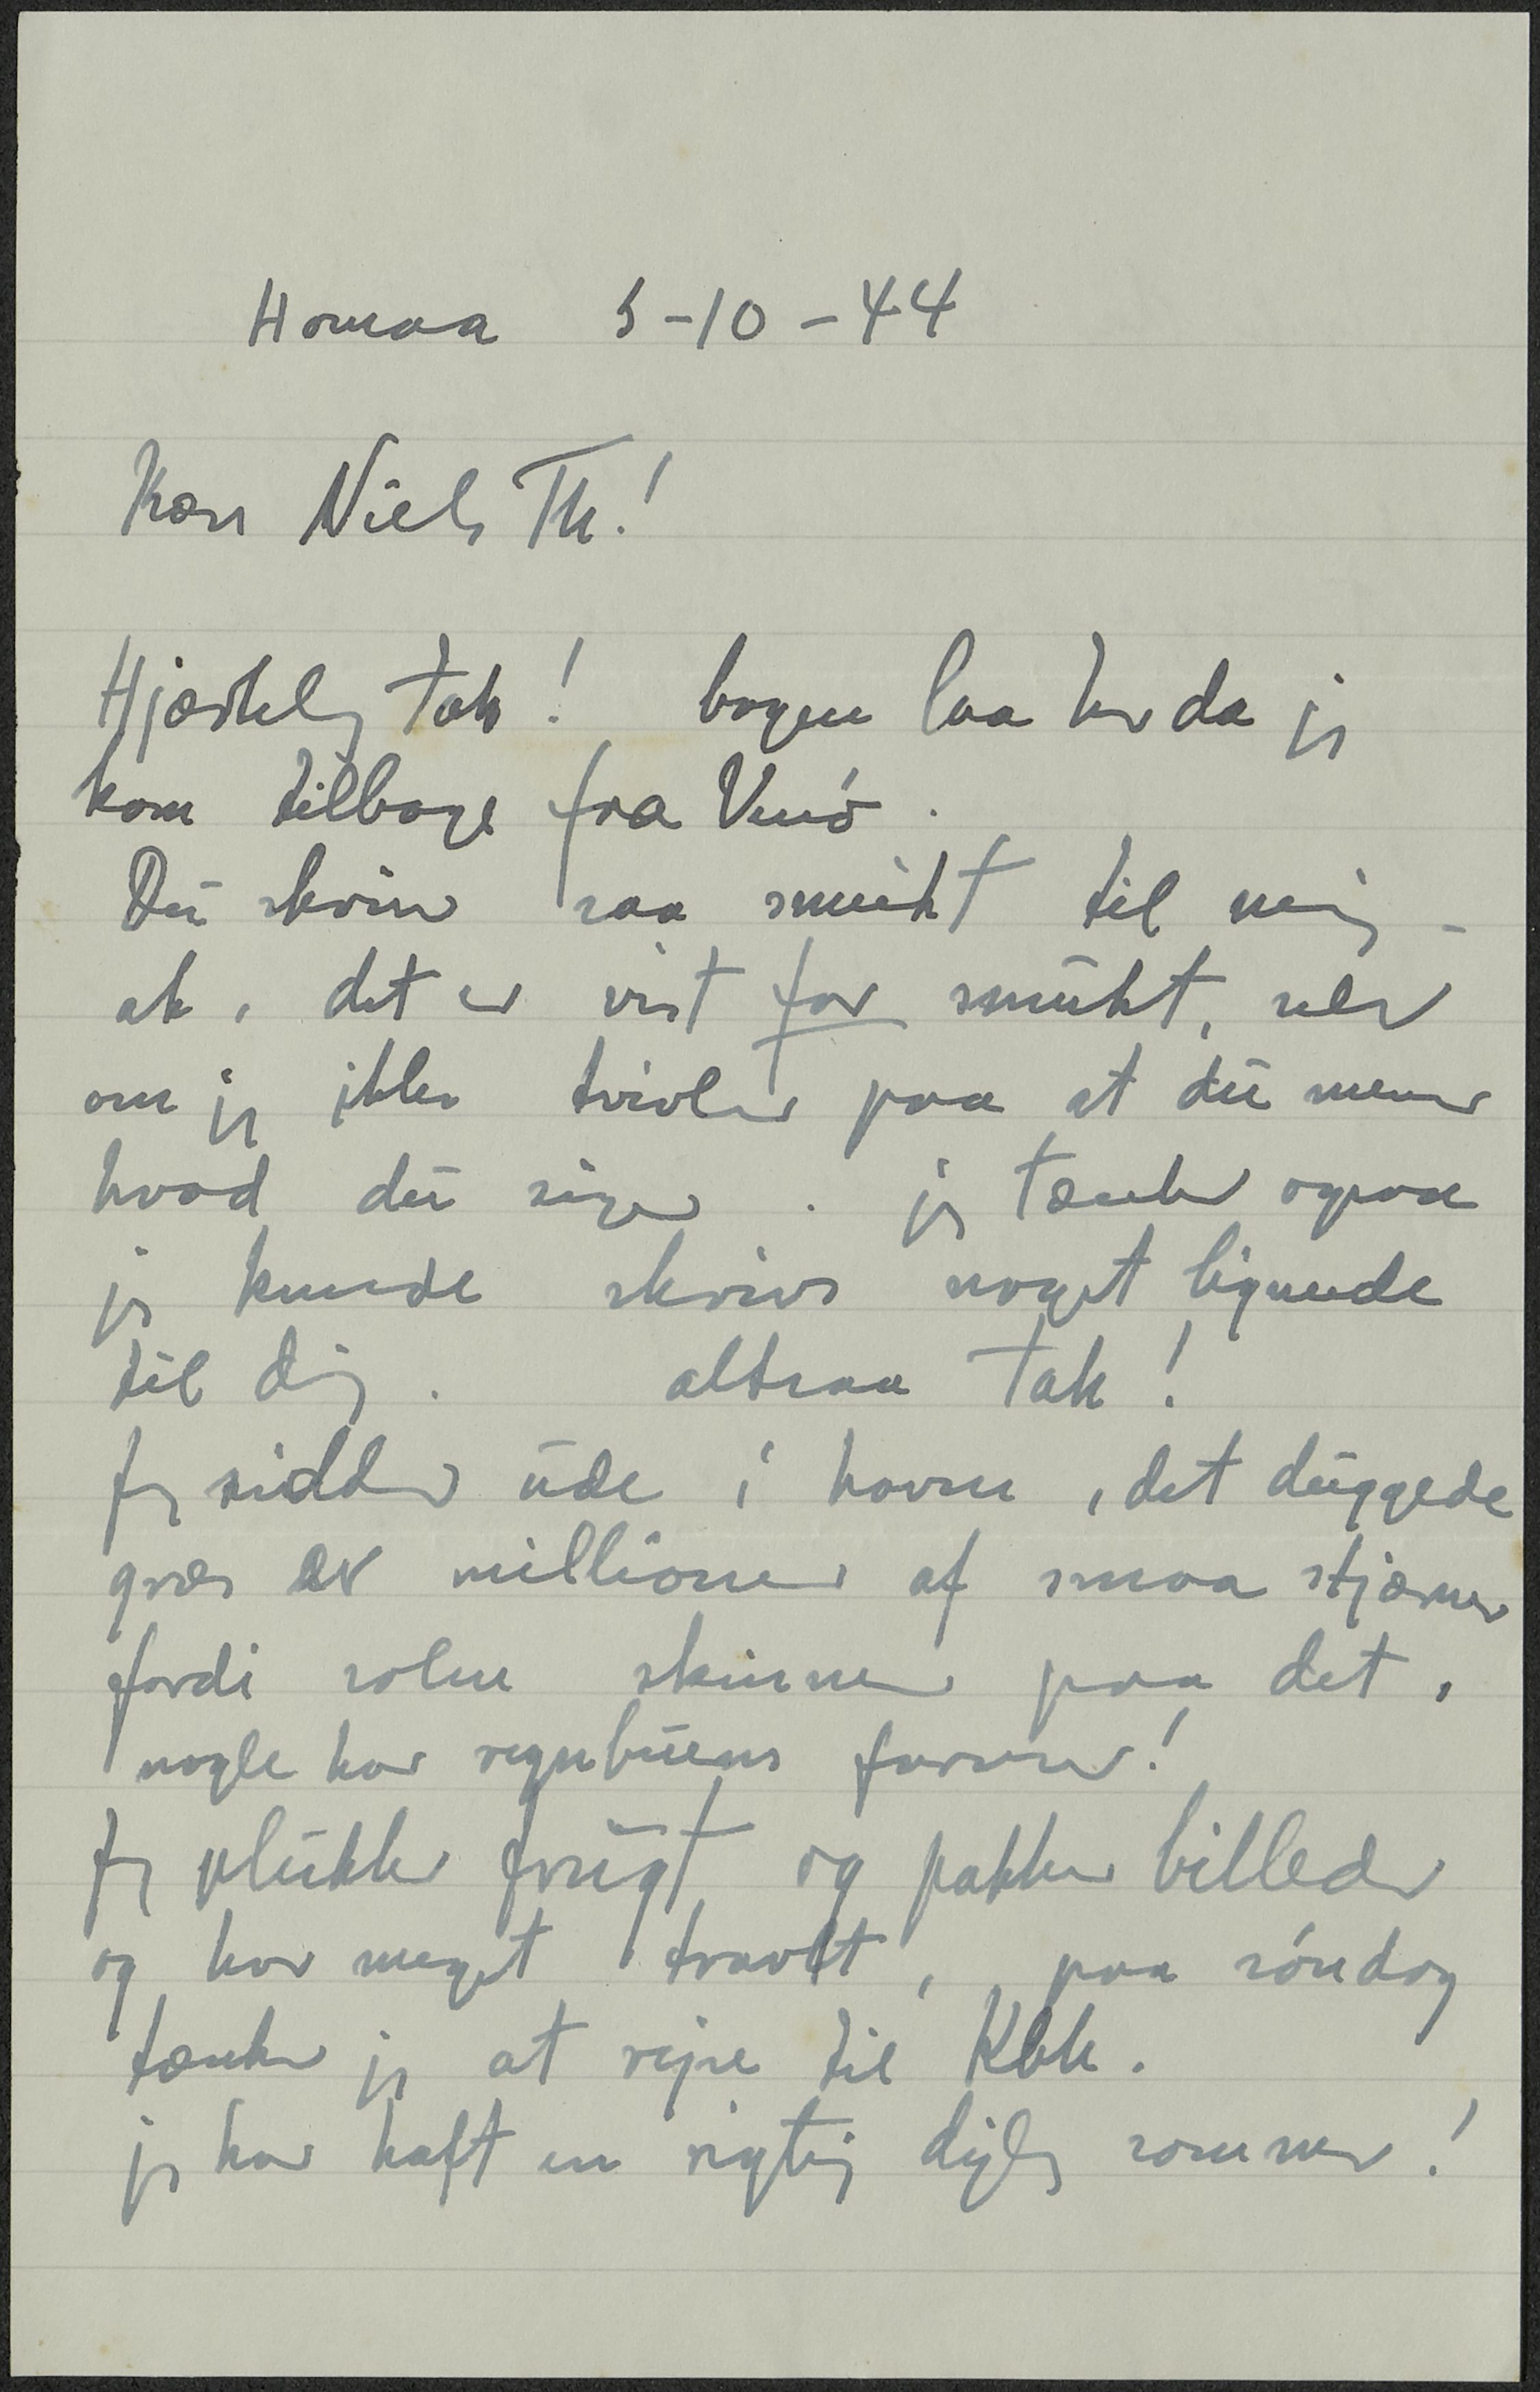 Homaa 5-10-44
Kære Niels Th!
Hjærtelig tak! bogen laa her da jeg
kom tilbage fra Venö.
Du skriver saa smukt til mig -
ak, det er vist for smukt, selv
om jeg ikke tvivler paa at du mener
hvad du siger. jeg tænker ogsaa
jeg kunde skrive noget lignende
til dig. altsaa tak!
Jeg sidder ude i haven, det duggede
græs er millioner af smaa stjærner
fordi solen skinner paa det,
nogle har regnbuens farver!
Jeg plukker frugt og pakker billeder
og har meget travlt, paa söndag
tænker jeg at rejse til Kbh.
jeg har haft en rigtig dejlig sommer!